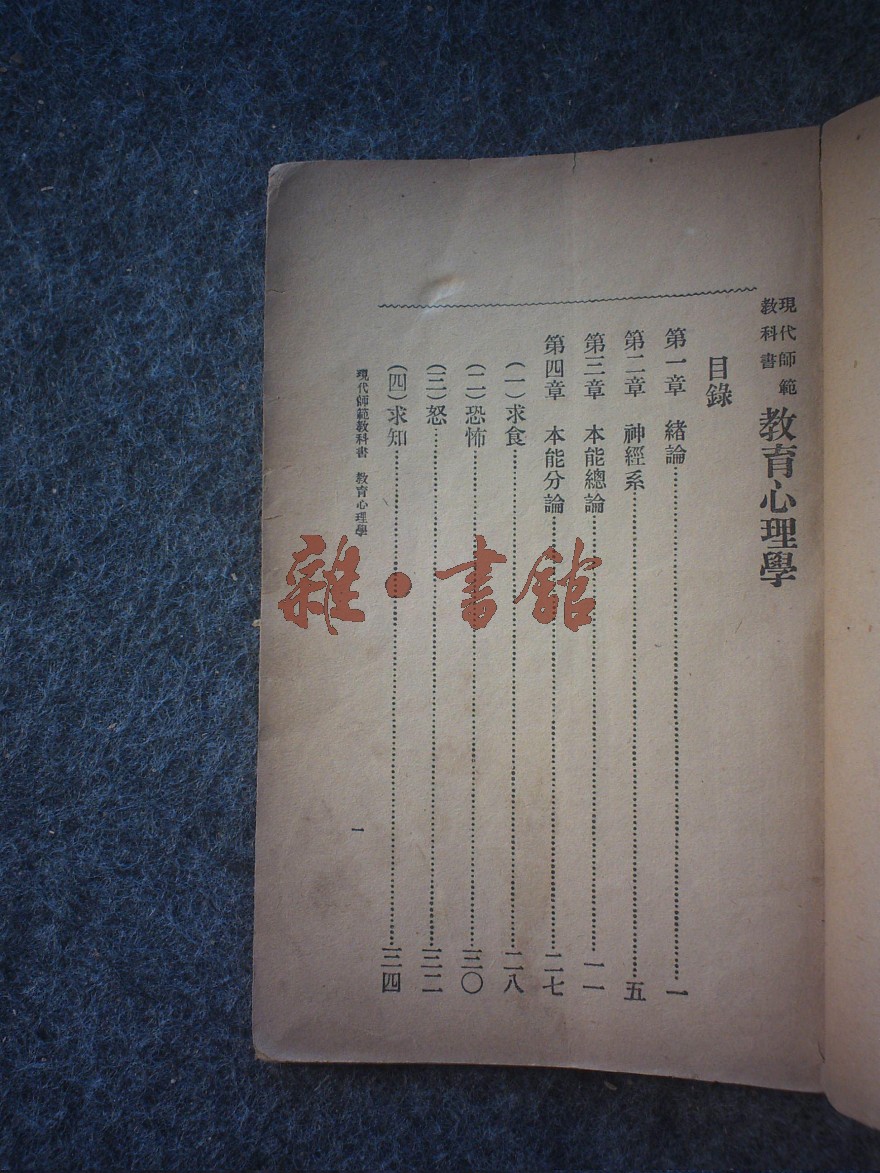 現代師範
教科書
教育心理學
目錄
第一章 緒論……一
第二章 神經系……五
第三章 本能總論……一一
第四章 本能分論……二七
(一)求食……二八
(二)恐怖……三〇
(三)怒……三二
(四)求知……三四
現代師範教科書 教育心理學
一
雜·書館